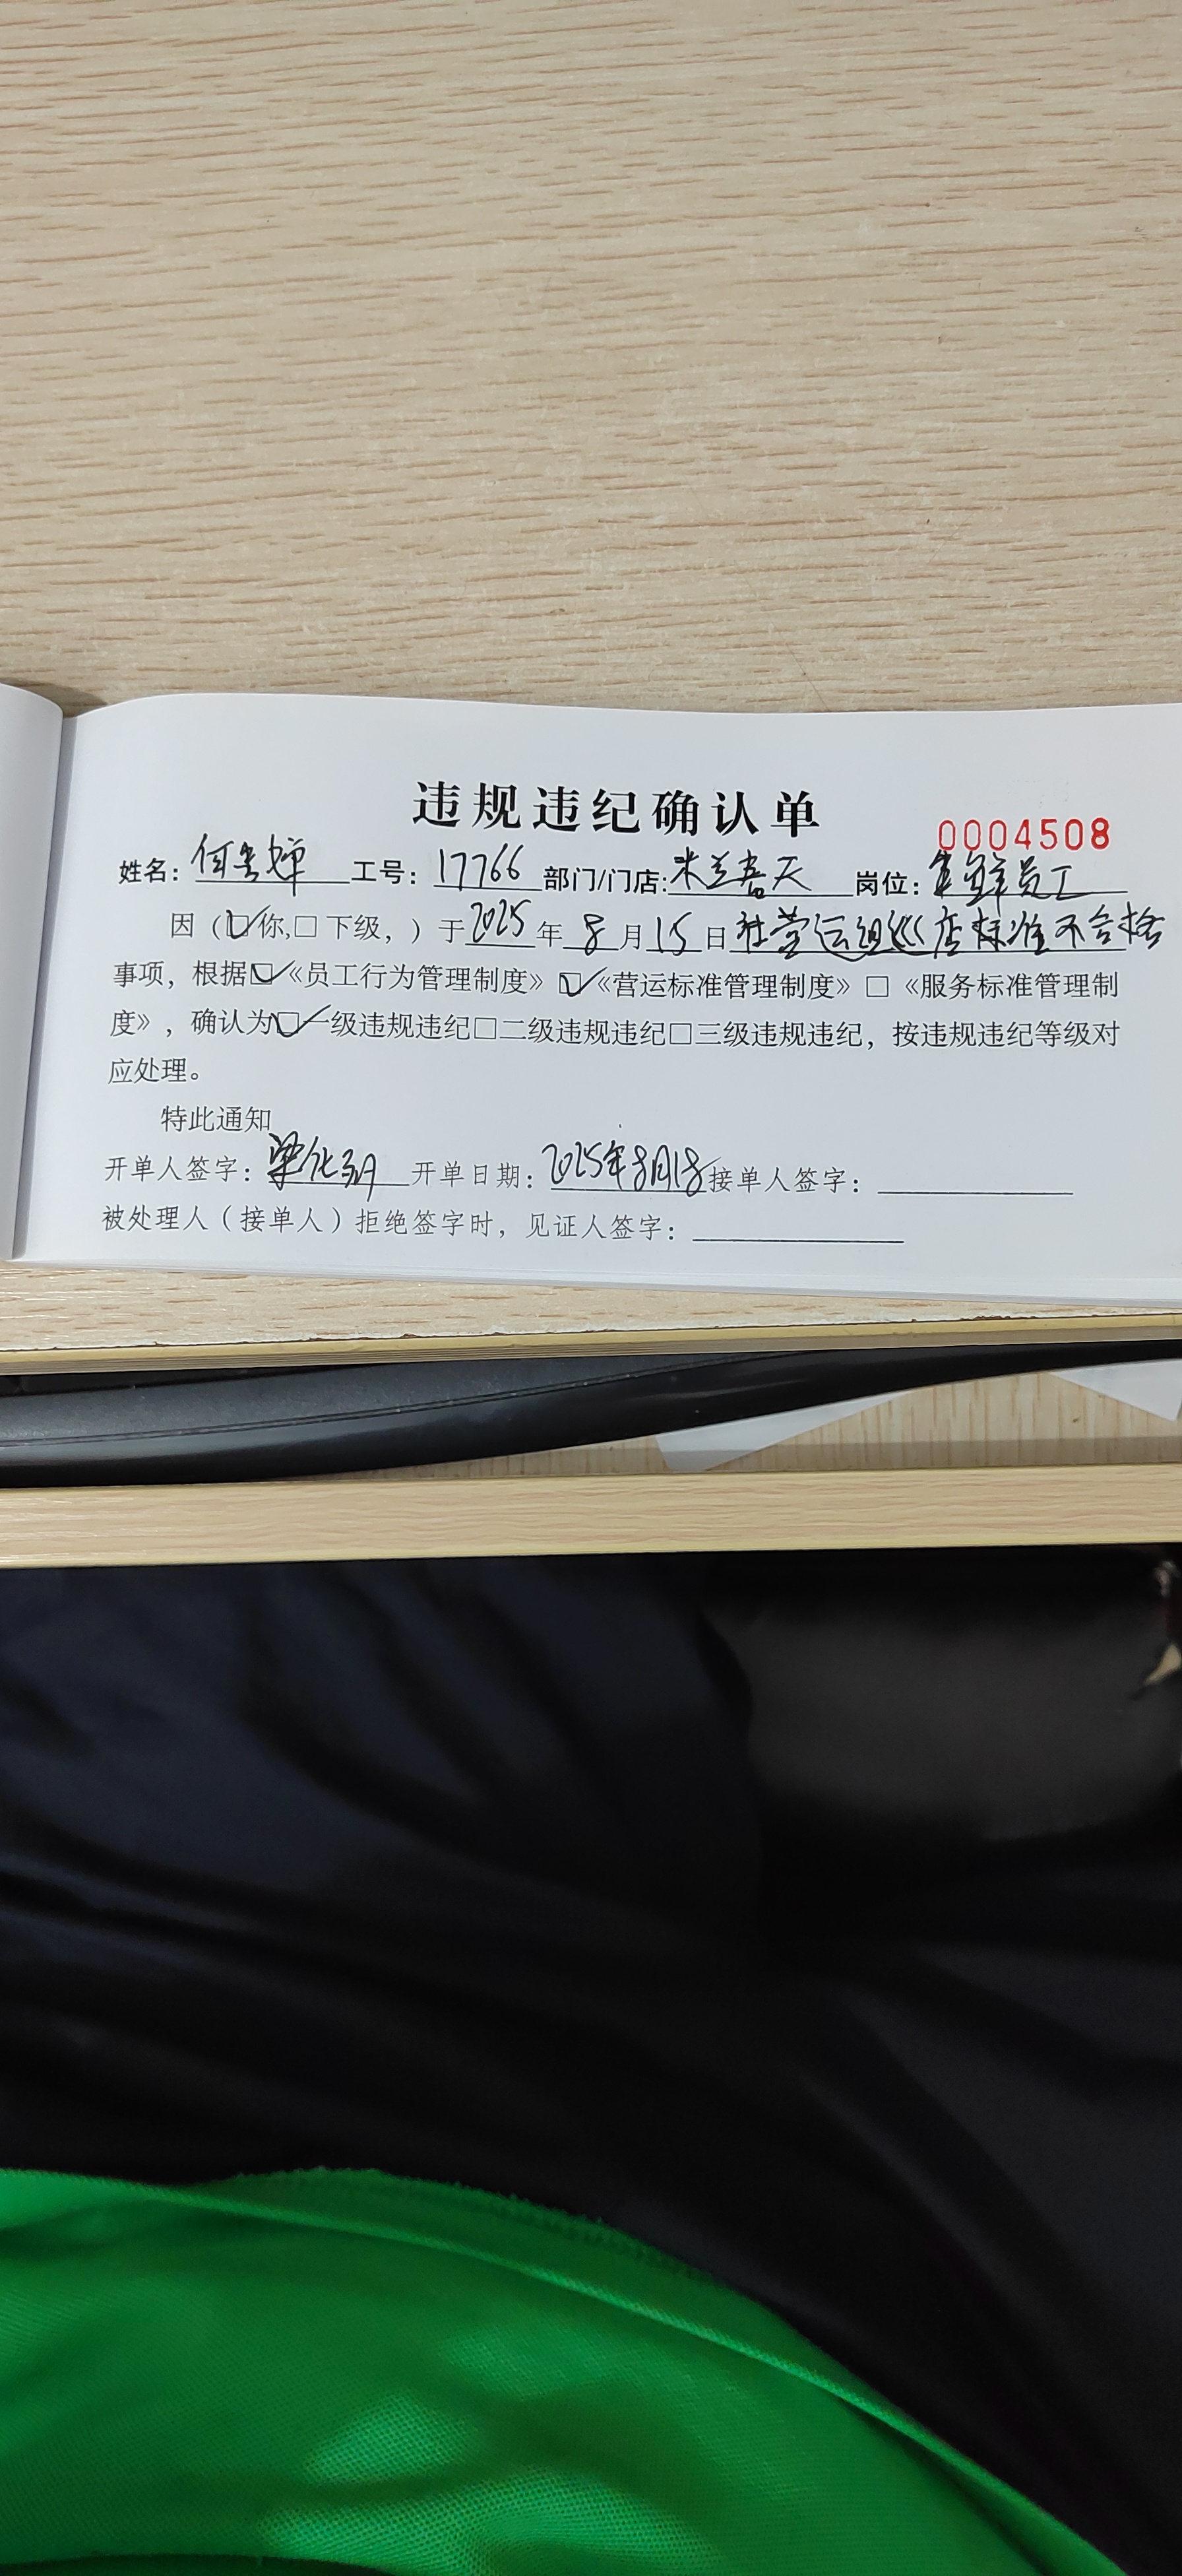 违规违纪确认单
0004508
姓名：何 婵 工号：17766 部门/门店:米兰春天 岗位：生鲜员工
因（☑你,□下级，）于2025年8月15日 营运组巡店标准不合格
事项，根据☑《员工行为管理制度》☑《营运标准管理制度》□《服务标准管理制
度》，确认为☑一级违规违纪□二级违规违纪□三级违规违纪，按违规违纪等级对
应处理。
特此通知
开单人签字：梁化 开单日期：2025年8月18 接单人签字：
被处理人（接单人）拒绝签字时，见证人签字：